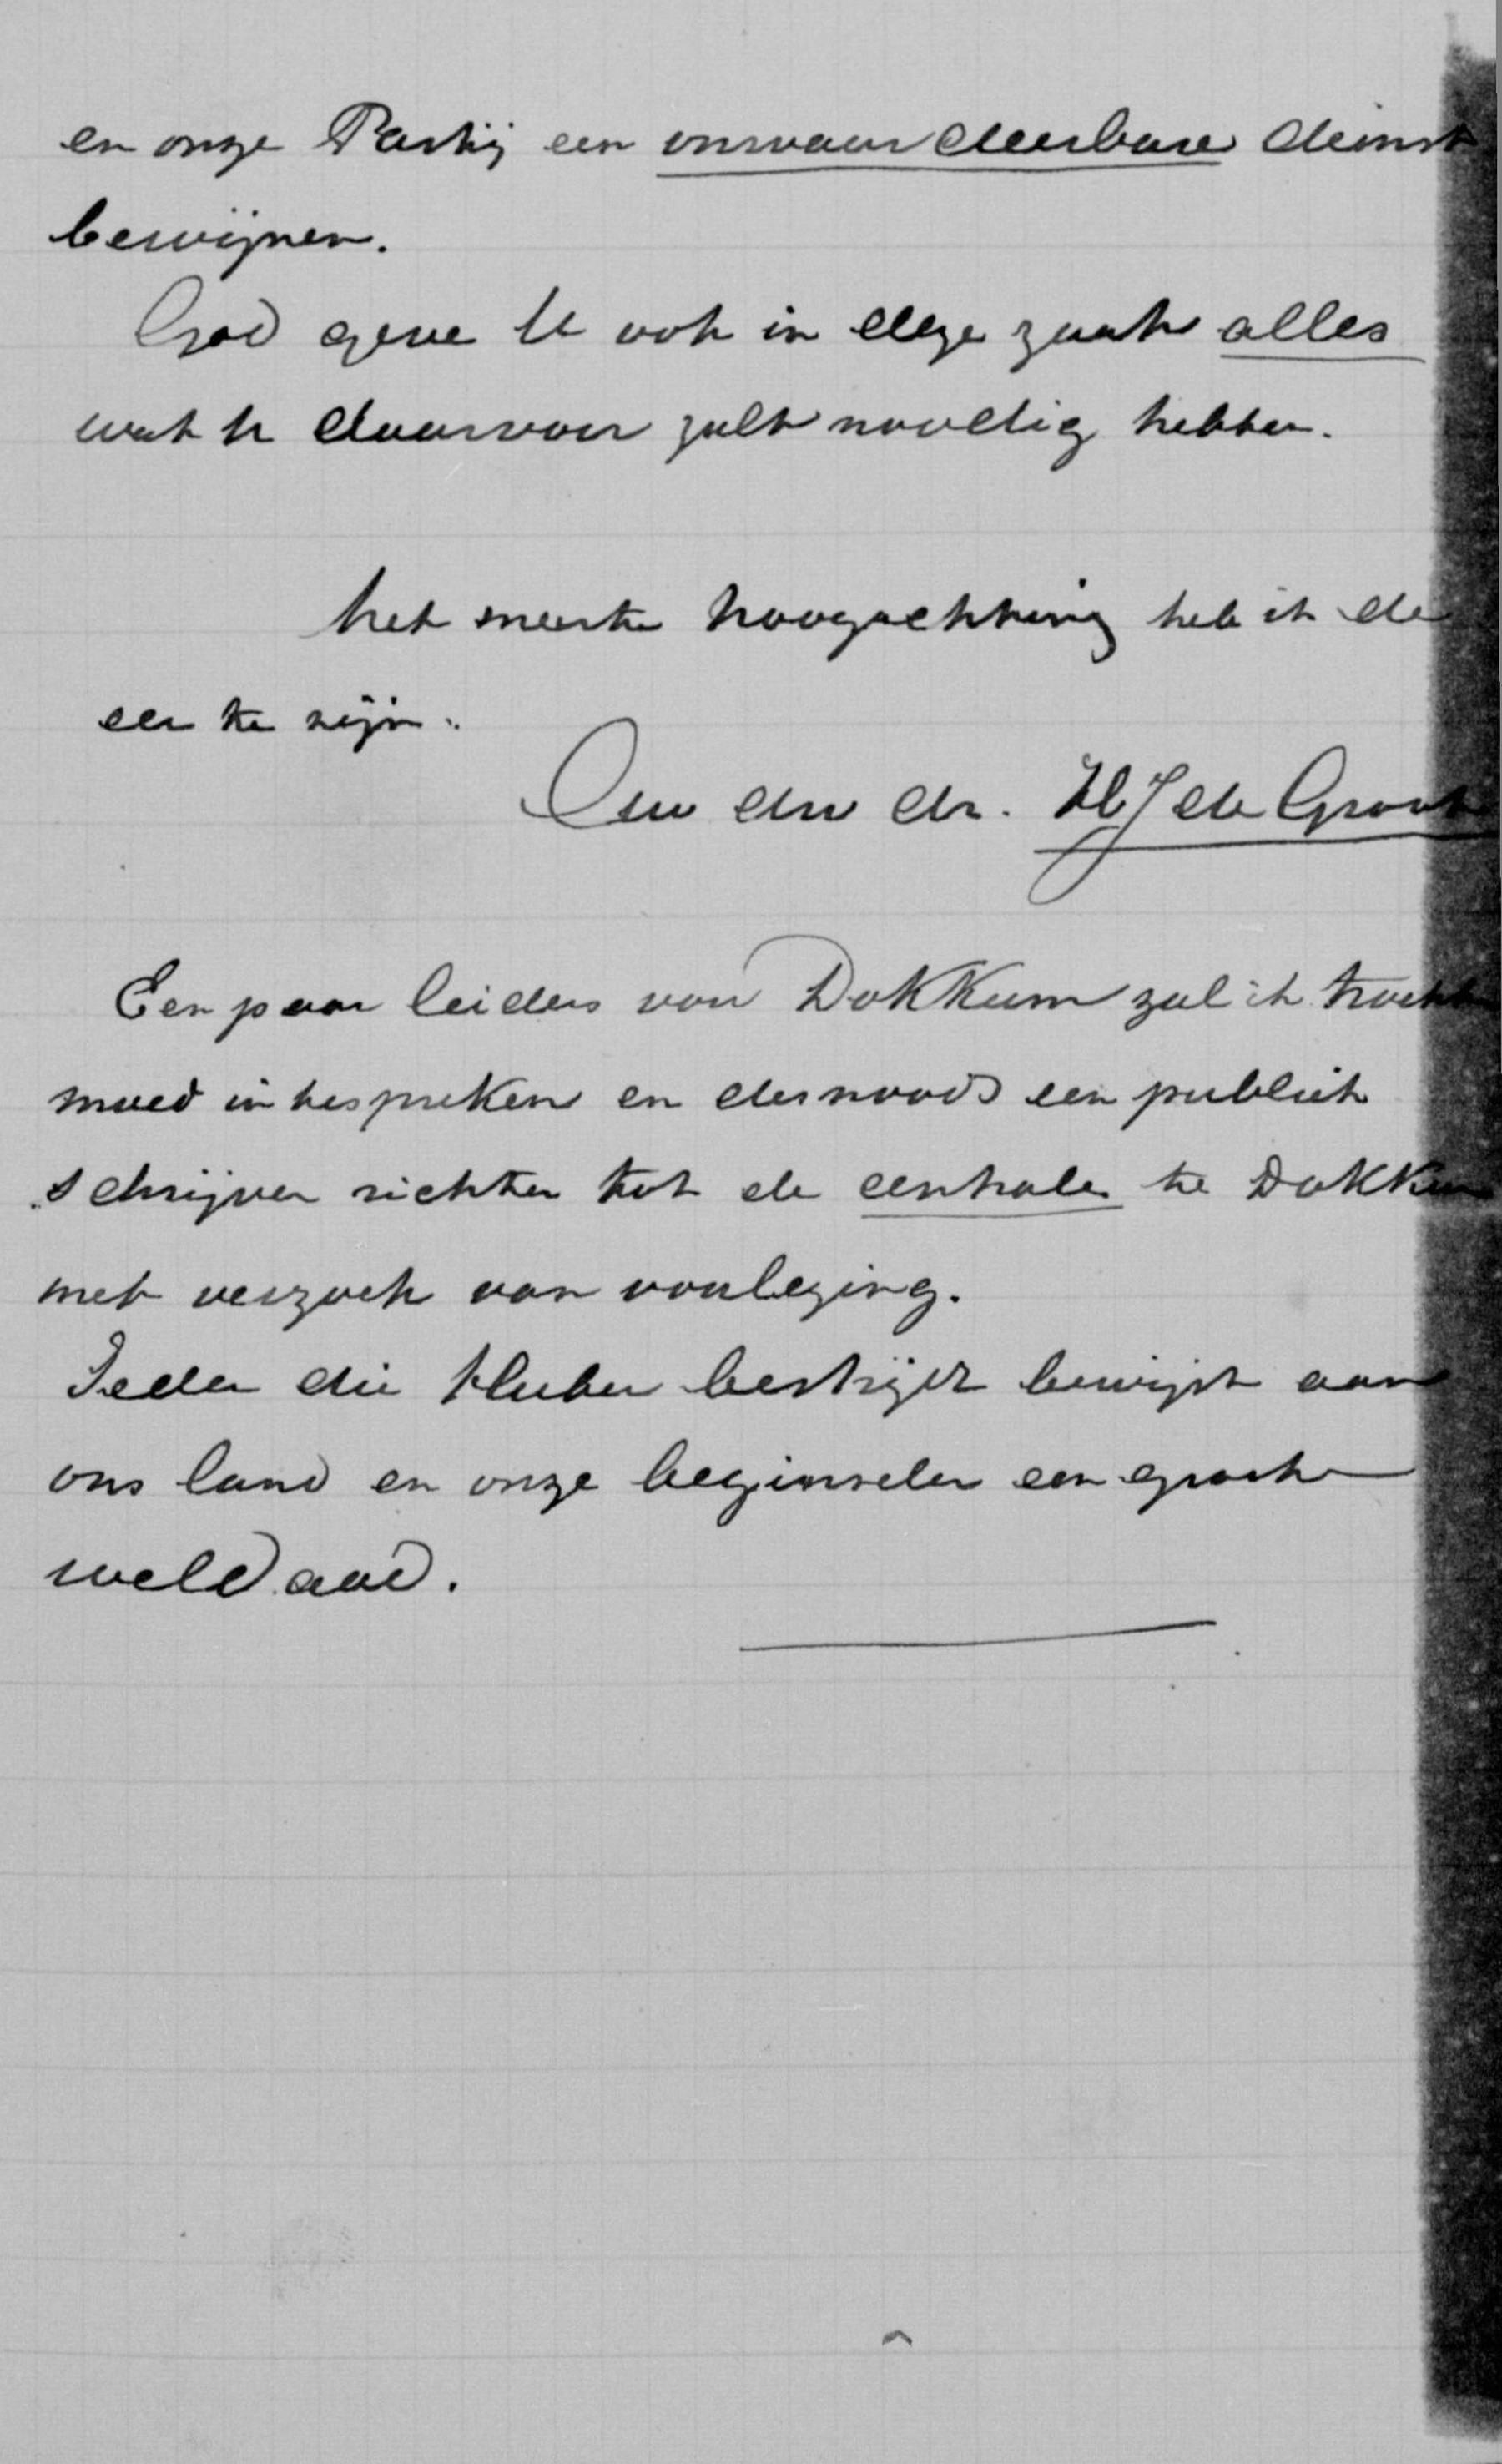 en onze Partij een onwaardeerbare dienst
bewijzen.
God geve U ook in deze zaak alles
wat U daarvoor zult noodig hebben.
Met meeste hoogachting heb ik de
eer te zijn.
Uw dw dr. HJ de Groot
Een paar leiders van Dokkum zal ik tracht
moed in te spreken en desnoods een publiek
schrijven richten tot de centrale te Dokkum
met verzoek van voorlezing.
Ieder die Kleber bestrijdt bewijst aan
ons land en onze beginselen een groote
weldaad.